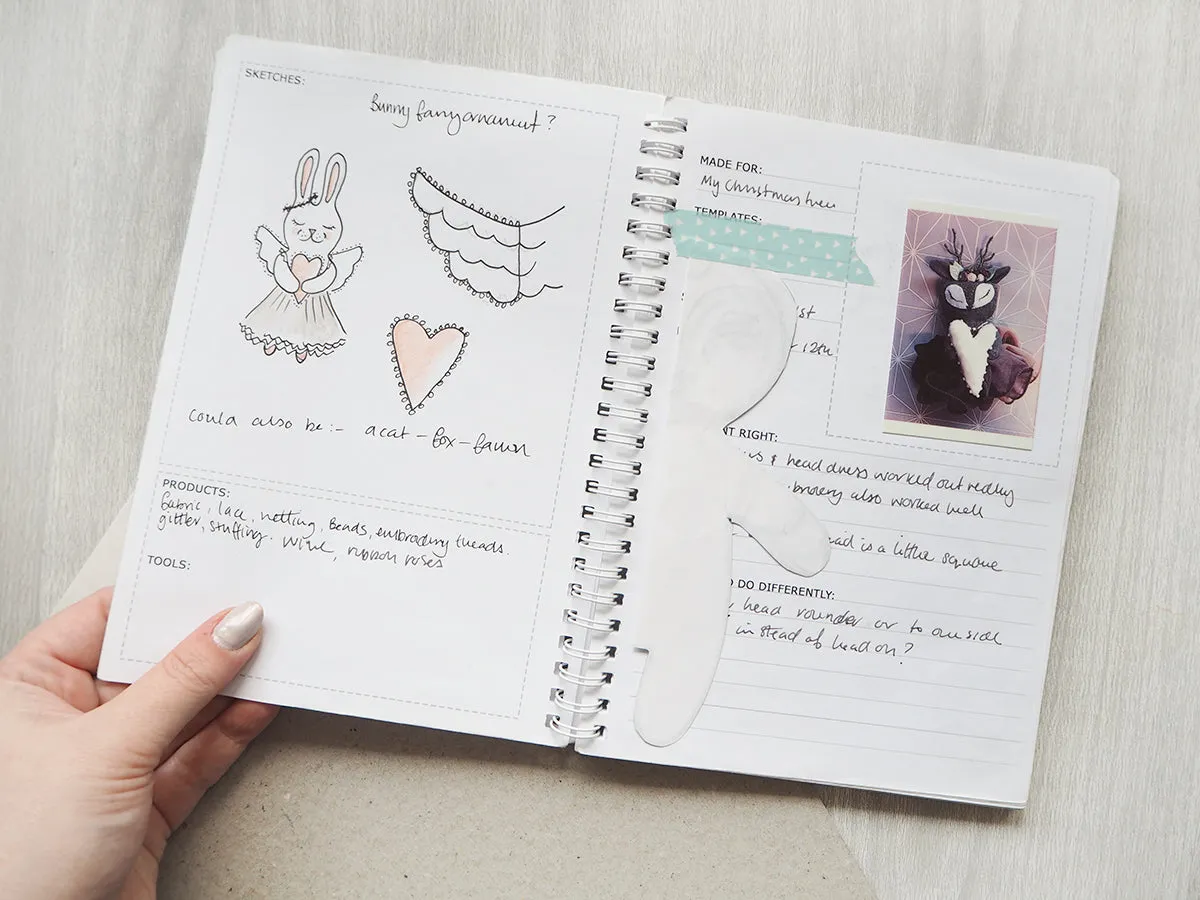 SKETCHES:
Bunny fairy ornament?
Could also be:- a cat - fox - fawn
PRODUCTS:
fabric, lace, netting, Beads, embroidery threads.
glitter, stuffing. wire, ribbon roses
TOOLS:
MADE FOR:
My Christmas tree
TEMPLATES:
st
- 12th
NT RIGHT:
& head dress worked out really
also worked well
ead is a little square
DO DIFFERENTLY:
head rounder or to one side
instead of head on?